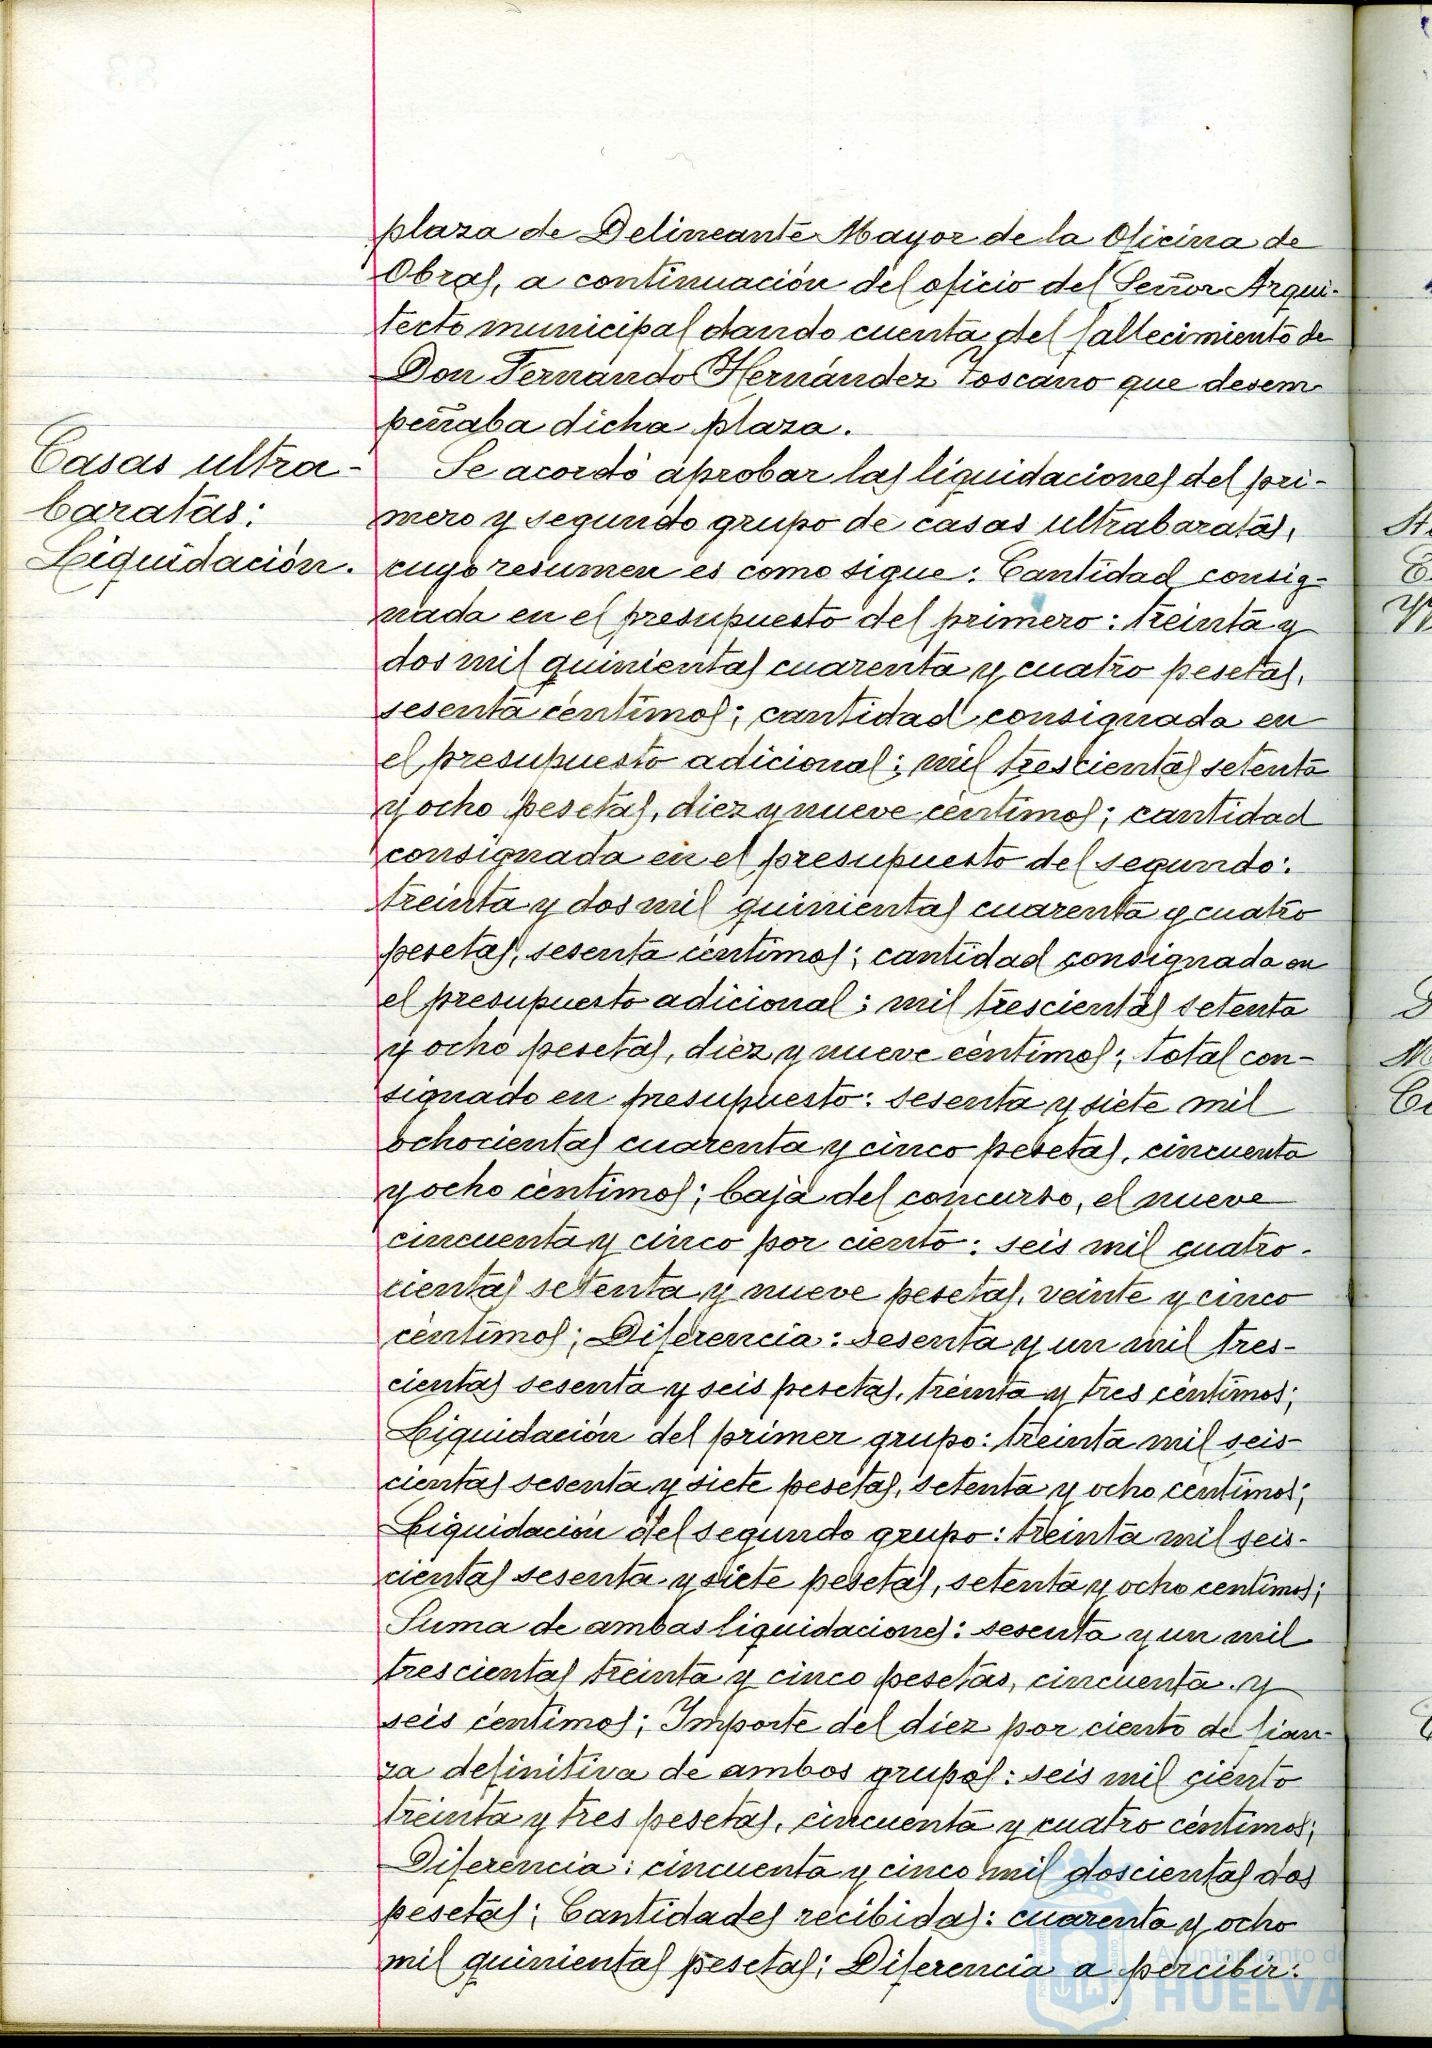 plaza de Delineante Mayor de la Oficina de
Obras, a continuación del oficio del Señor Arqui-
tecto municipal dando cuenta del fallecimiento de
Don Fernando Hernández Toscano que desem
peñaba dicha plaza.
Casas ultra-
baratas:
Liquidación.
Se acordó aprobar las liquidaciones del pri-
mero y segundo grupo de casas ultrabaratas,
cuyo resumen es como sigue: Cantidad consig-
nada en el presupuesto del primero: treinta y
dos mil quinientas cuarenta y cuatro pesetas,
sesenta céntimos; cantidad consignada en
el presupuesto adicional: mil trescientas setenta
y ocho pesetas, diez y nueve céntimos; cantidad
consignada en el presupuesto del segundo:
treinta y dos mil quinientas cuarenta y cuatro
pesetas, sesenta céntimos; cantidad consignada en
el presupuesto adicional: mil trescientas setenta
y ocho pesetas, diez y nueve céntimos; total con-
signado en presupuesto: sesenta y siete mil
ochocientas cuarenta y cinco pesetas, cincuenta
y ocho céntimos; baja del concurso, el nueve
cincuenta y cinco por ciento: seis mil cuatro-
cientas setenta y nueve pesetas, veinte y cinco
céntimos; Diferencia: sesenta y un mil tres-
cientas sesenta y seis pesetas, treinta y tres céntimos;
Liquidación del primer grupo: treinta mil seis-
cientas sesenta y siete pesetas, setenta y ocho céntimos;
Liquidación del segundo grupo: treinta mil seis-
cientas sesenta y siete pesetas, setenta y ocho centimos;
Suma de ambas liquidaciones: sesenta y un mil
trescientas treinta y cinco pesetas, cincuenta y
seis céntimos; Importe del diez por ciento de fian-
za definitiva de ambos grupos: seis mil ciento
treinta y tres pesetas, cincuenta y cuatro céntimos;
Diferencia: cincuenta y cinco mil doscientas dos
pesetas; Cantidades recibidas: cuarenta y ocho
mil quinientas pesetas; Diferencia a percibir:
Ayuntamiento de
HUELVA